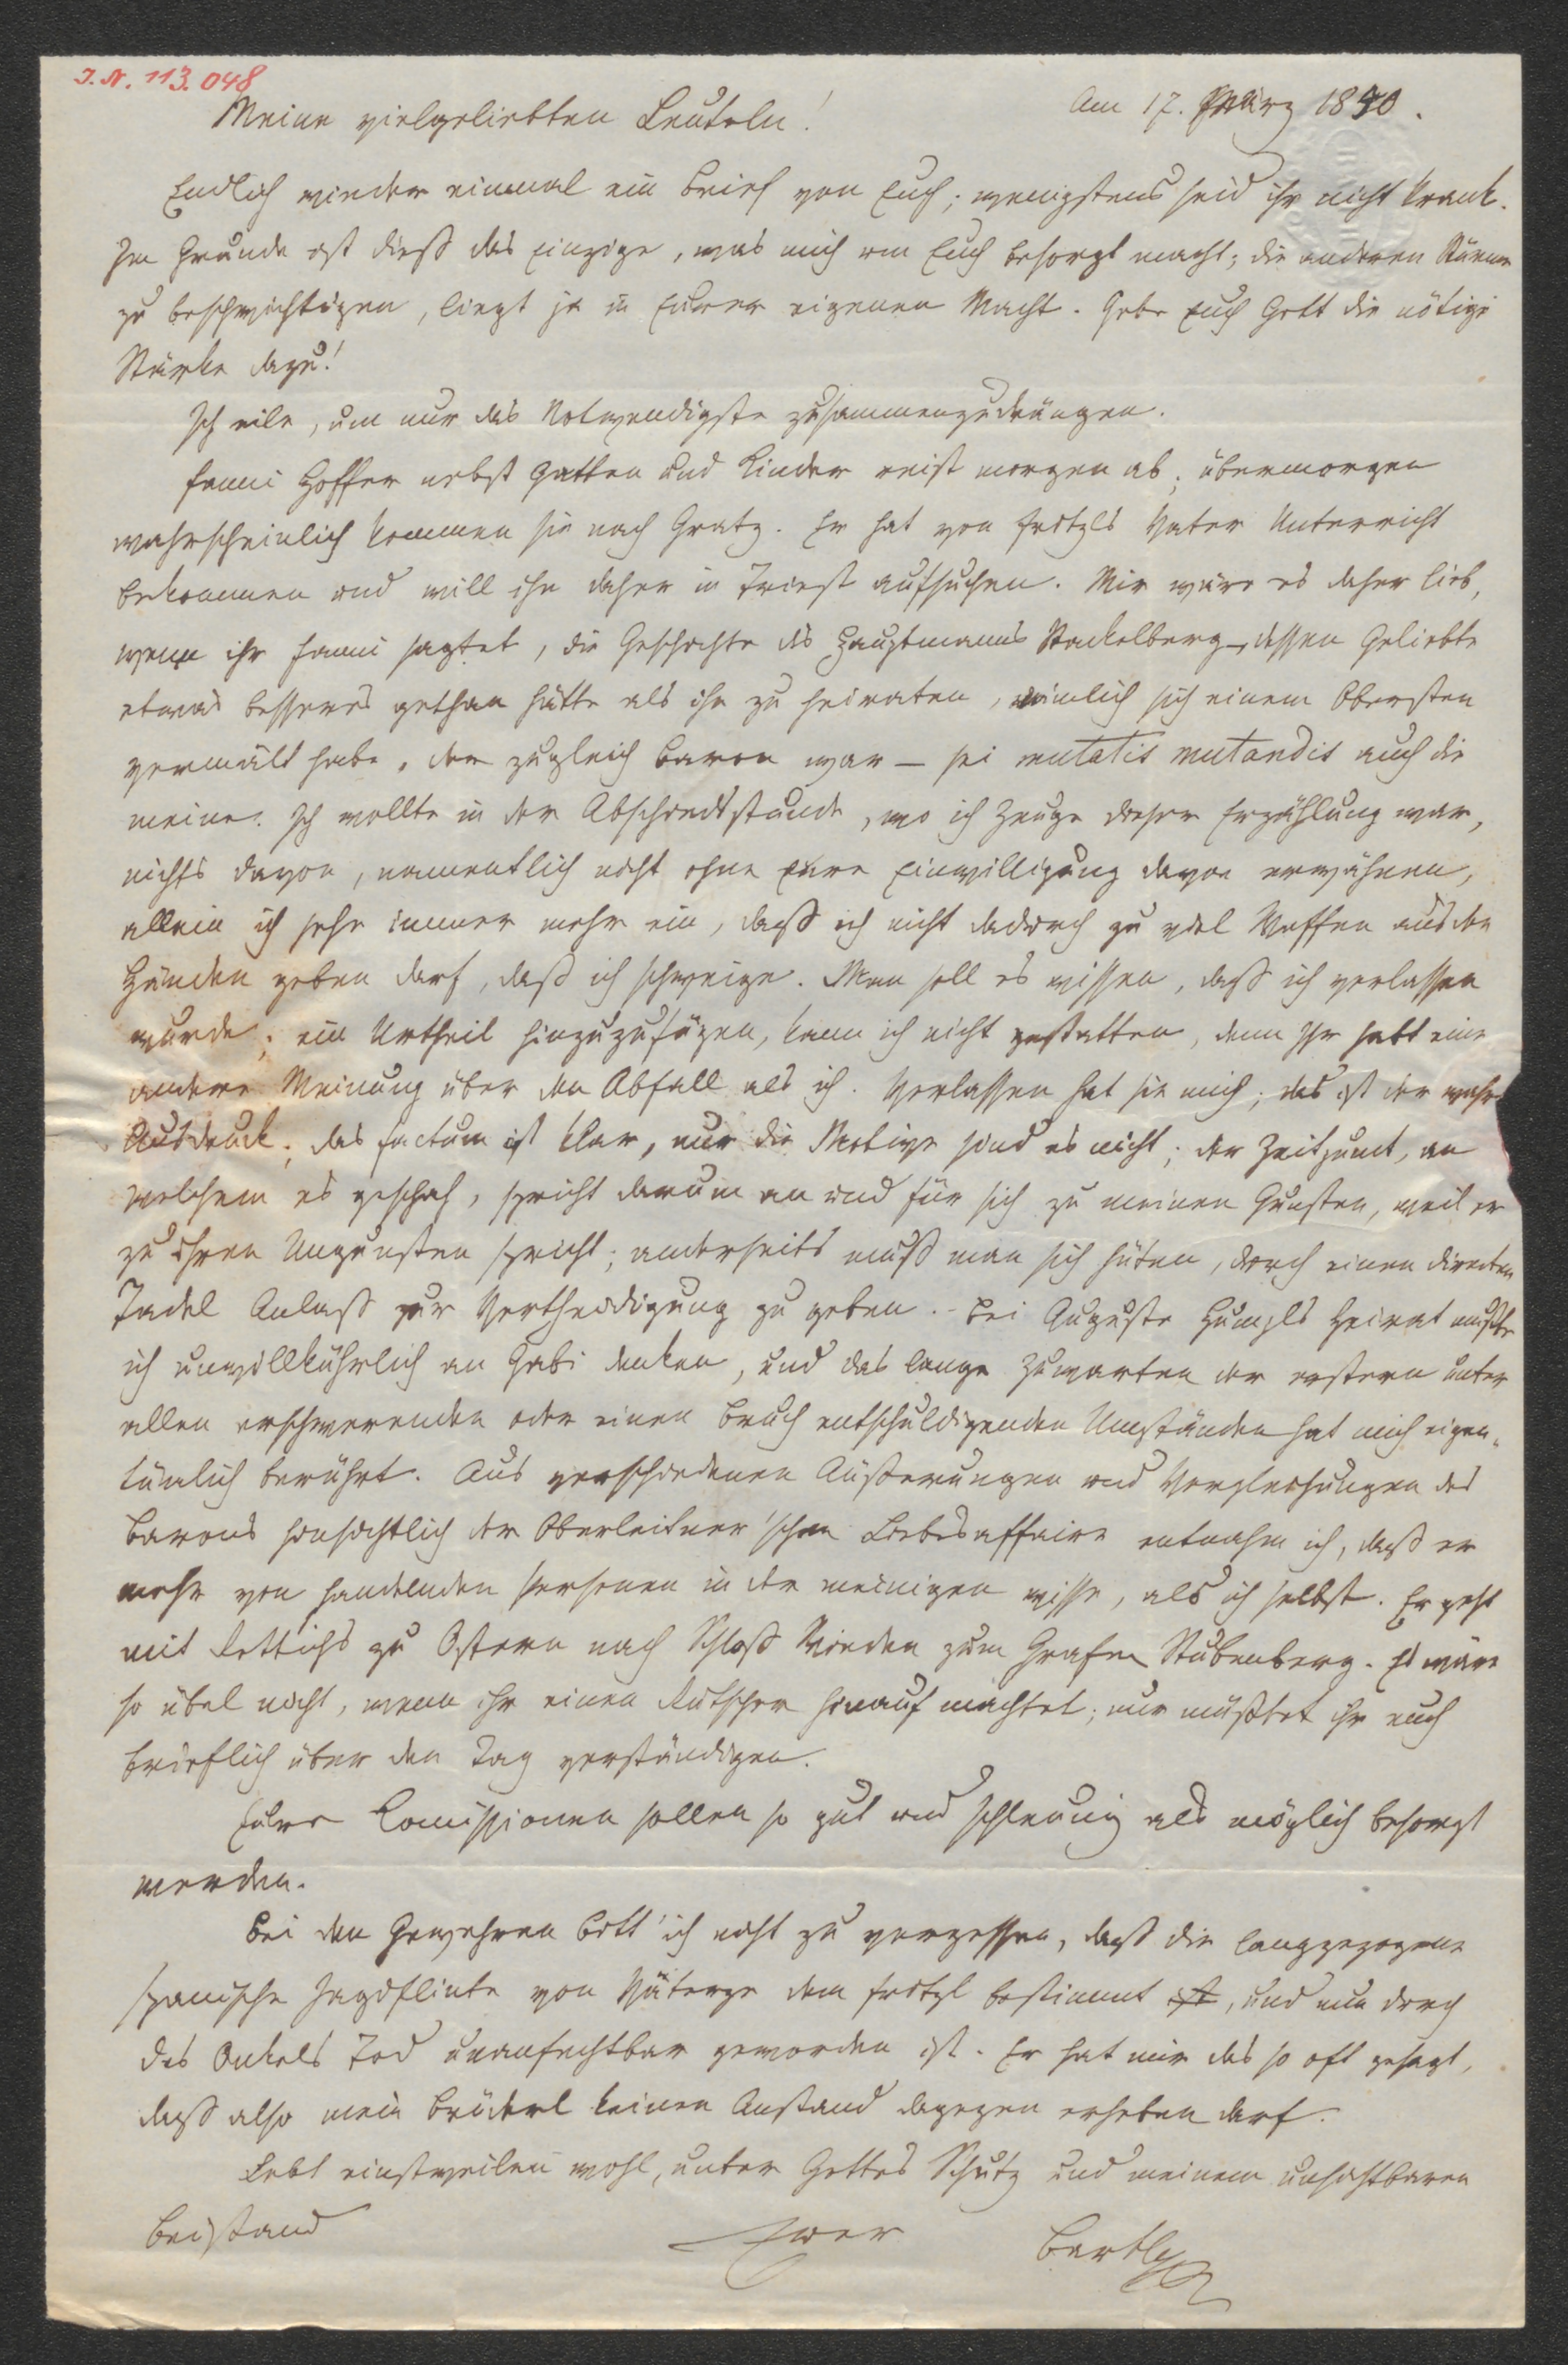 I. N. 113.048
Am 17. März 1850.
Meine vielgeliebten Leuteln!
Endlich wieder einmal ein Brief von Euch; wenigstens seid ihr nicht krank.
Im Grunde ist dieß das Einzige, was mich um Euch besorgt macht; die anderen Stürme
zu beschwichtigen, liegt ja in Eurer eigenen Macht. Gebe Euch Gott die nötige
Stärke dazu!
Ich eile, um nur das Notwendigste zusammenzudrängen.
Fanni Hoffer nebst Gatten und Kinder reist morgen ab; übermorgen
wahrscheinlich kommen sie nach Gratz. Er hat von Fritzls Vater Unterricht
bekommen und will ihn daher in Triest aufsuchen. Mir wäre es daher lieb,
wenn ihr Fanni sagtet, die Geschichte des Hauptmanns Stackelberg – dessen Geliebte
etwas besseres gethan hätte als ihn zu heiraten, nämlich sich einem Obersten
vermält habe, der zugleich Baron war – sei mutatis mutandis auch die
meine. Ich wollte in der Abschiedsstunde, wo ich Zeuge dieser Erzählung war,
nichts davon, namentlich nicht ohne Eure Einwilligung davon erwähnen,
allein ich sehe immer mehr ein, daß ich nicht dadurch zu viel Waffen aus den
Händen geben darf, daß ich schweige. Man soll es wissen, daß ich verlassen
wurde; ein Urtheil hinzuzufügen, kann ich nicht gestatten, denn Ihr habt eine
andere Meinung über den Abfall als ich. Verlassen hat sie mich; das ist der wahre
Ausdruck; das Factum ist klar, nur die Motive sind es nicht; der Zeitpunct, an
welchem es geschah, spricht darum an und für sich zu meinen Gunsten, weil er
zu ihren Ungunsten spricht; anderseits muß man sich hüten, durch einen directen
Tadel Anlaß zur Vertheidigung zu geben. – Bei Auguste Heirat mußte
ich unwillkührlich an Gabi denken, und das lange Zuwarten der erstern unter
allen erschwerenden oder einen Bruch entschuldigenden Umständen hat mich eigen-
tümlich berührt. Aus verschiedenen Äußerungen und Vergleichungen des
Barons hinsichtlich der Oberleitner'schen Liebesaffaire entnahm ich, daß er
mehr von handelnden Personen in der meinigen wisse, als ich selbst. Er geht
mit Rettichs zu Ostern nach Schloß Wieden zum Grafen Stubenberg. Es wäre
so übel nicht, wenn ihr einen Rutscher hinauf machtet; nur müßtet ihr euch
brieflich über den Tag verständigen.
Eure Comissionen sollen so gut und schleunig als möglich besorgt
werden.
Bei den Gewehren bitt' ich nicht zu vergessen, daß die langgezogene
spanische Jagdflinte von dem Fritzl bestimmt ist, und nun durch
des Onkels Tod unanfechtbar geworden ist. Er hat mir das so oft gesagt,
daß also mein Brüderl keinen Anstand dagegen erheben darf.
Lebt einstweilen wohl, unter Gottes Schutz und meinem unsichtbaren
Beistand
Euer Bartl